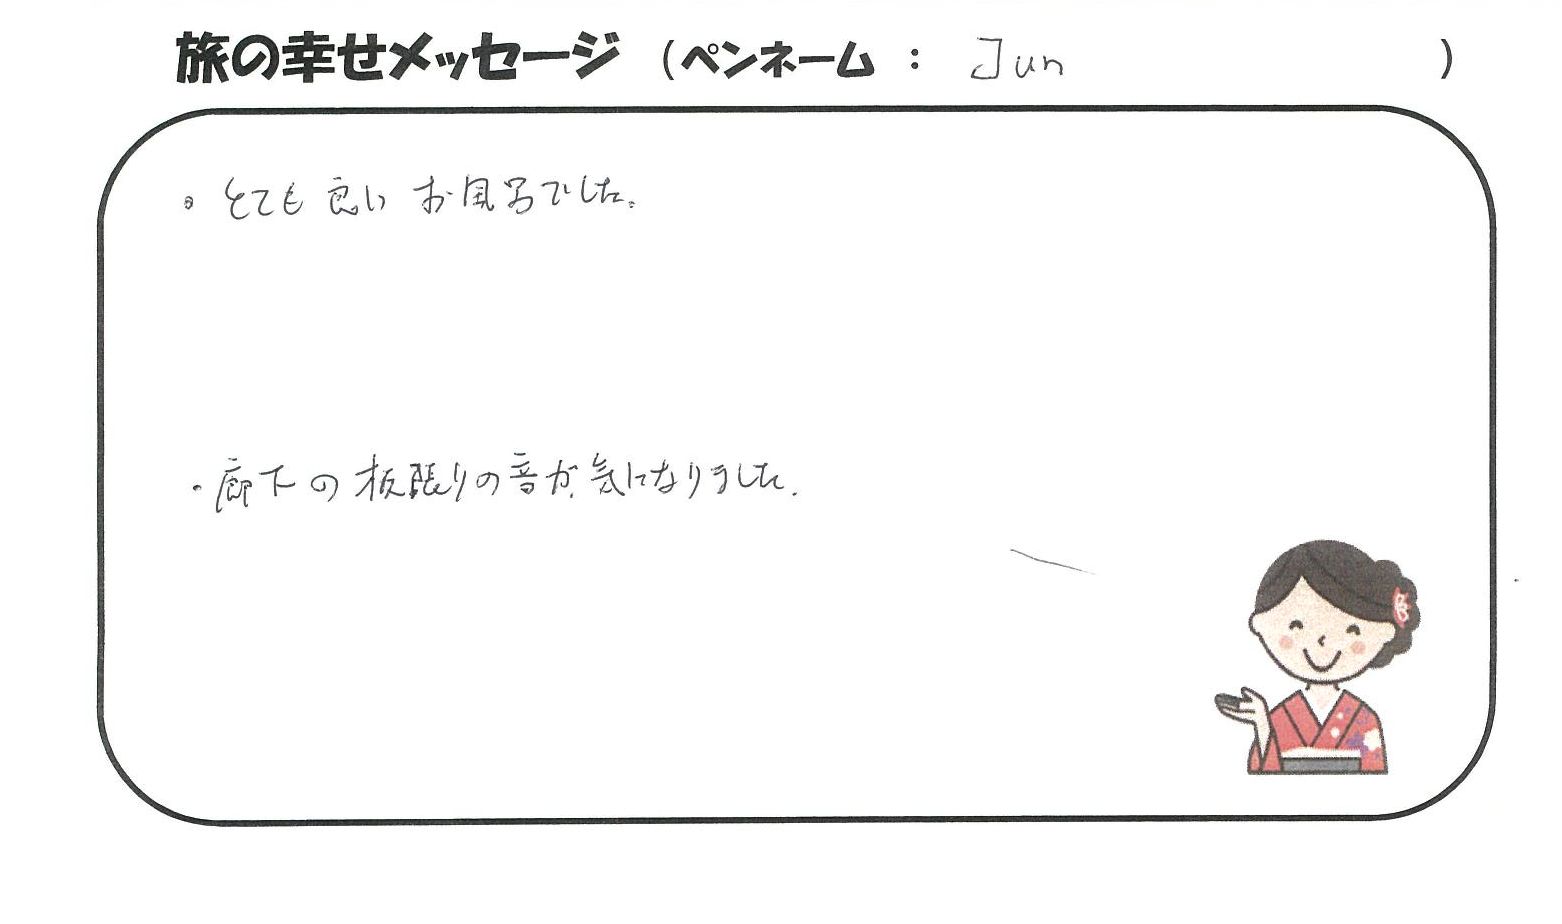 旅の幸せメッセージ (ペンネーム : Jun )
・とても良いお風呂でした。
・廊下の板張りの音が気になりました.